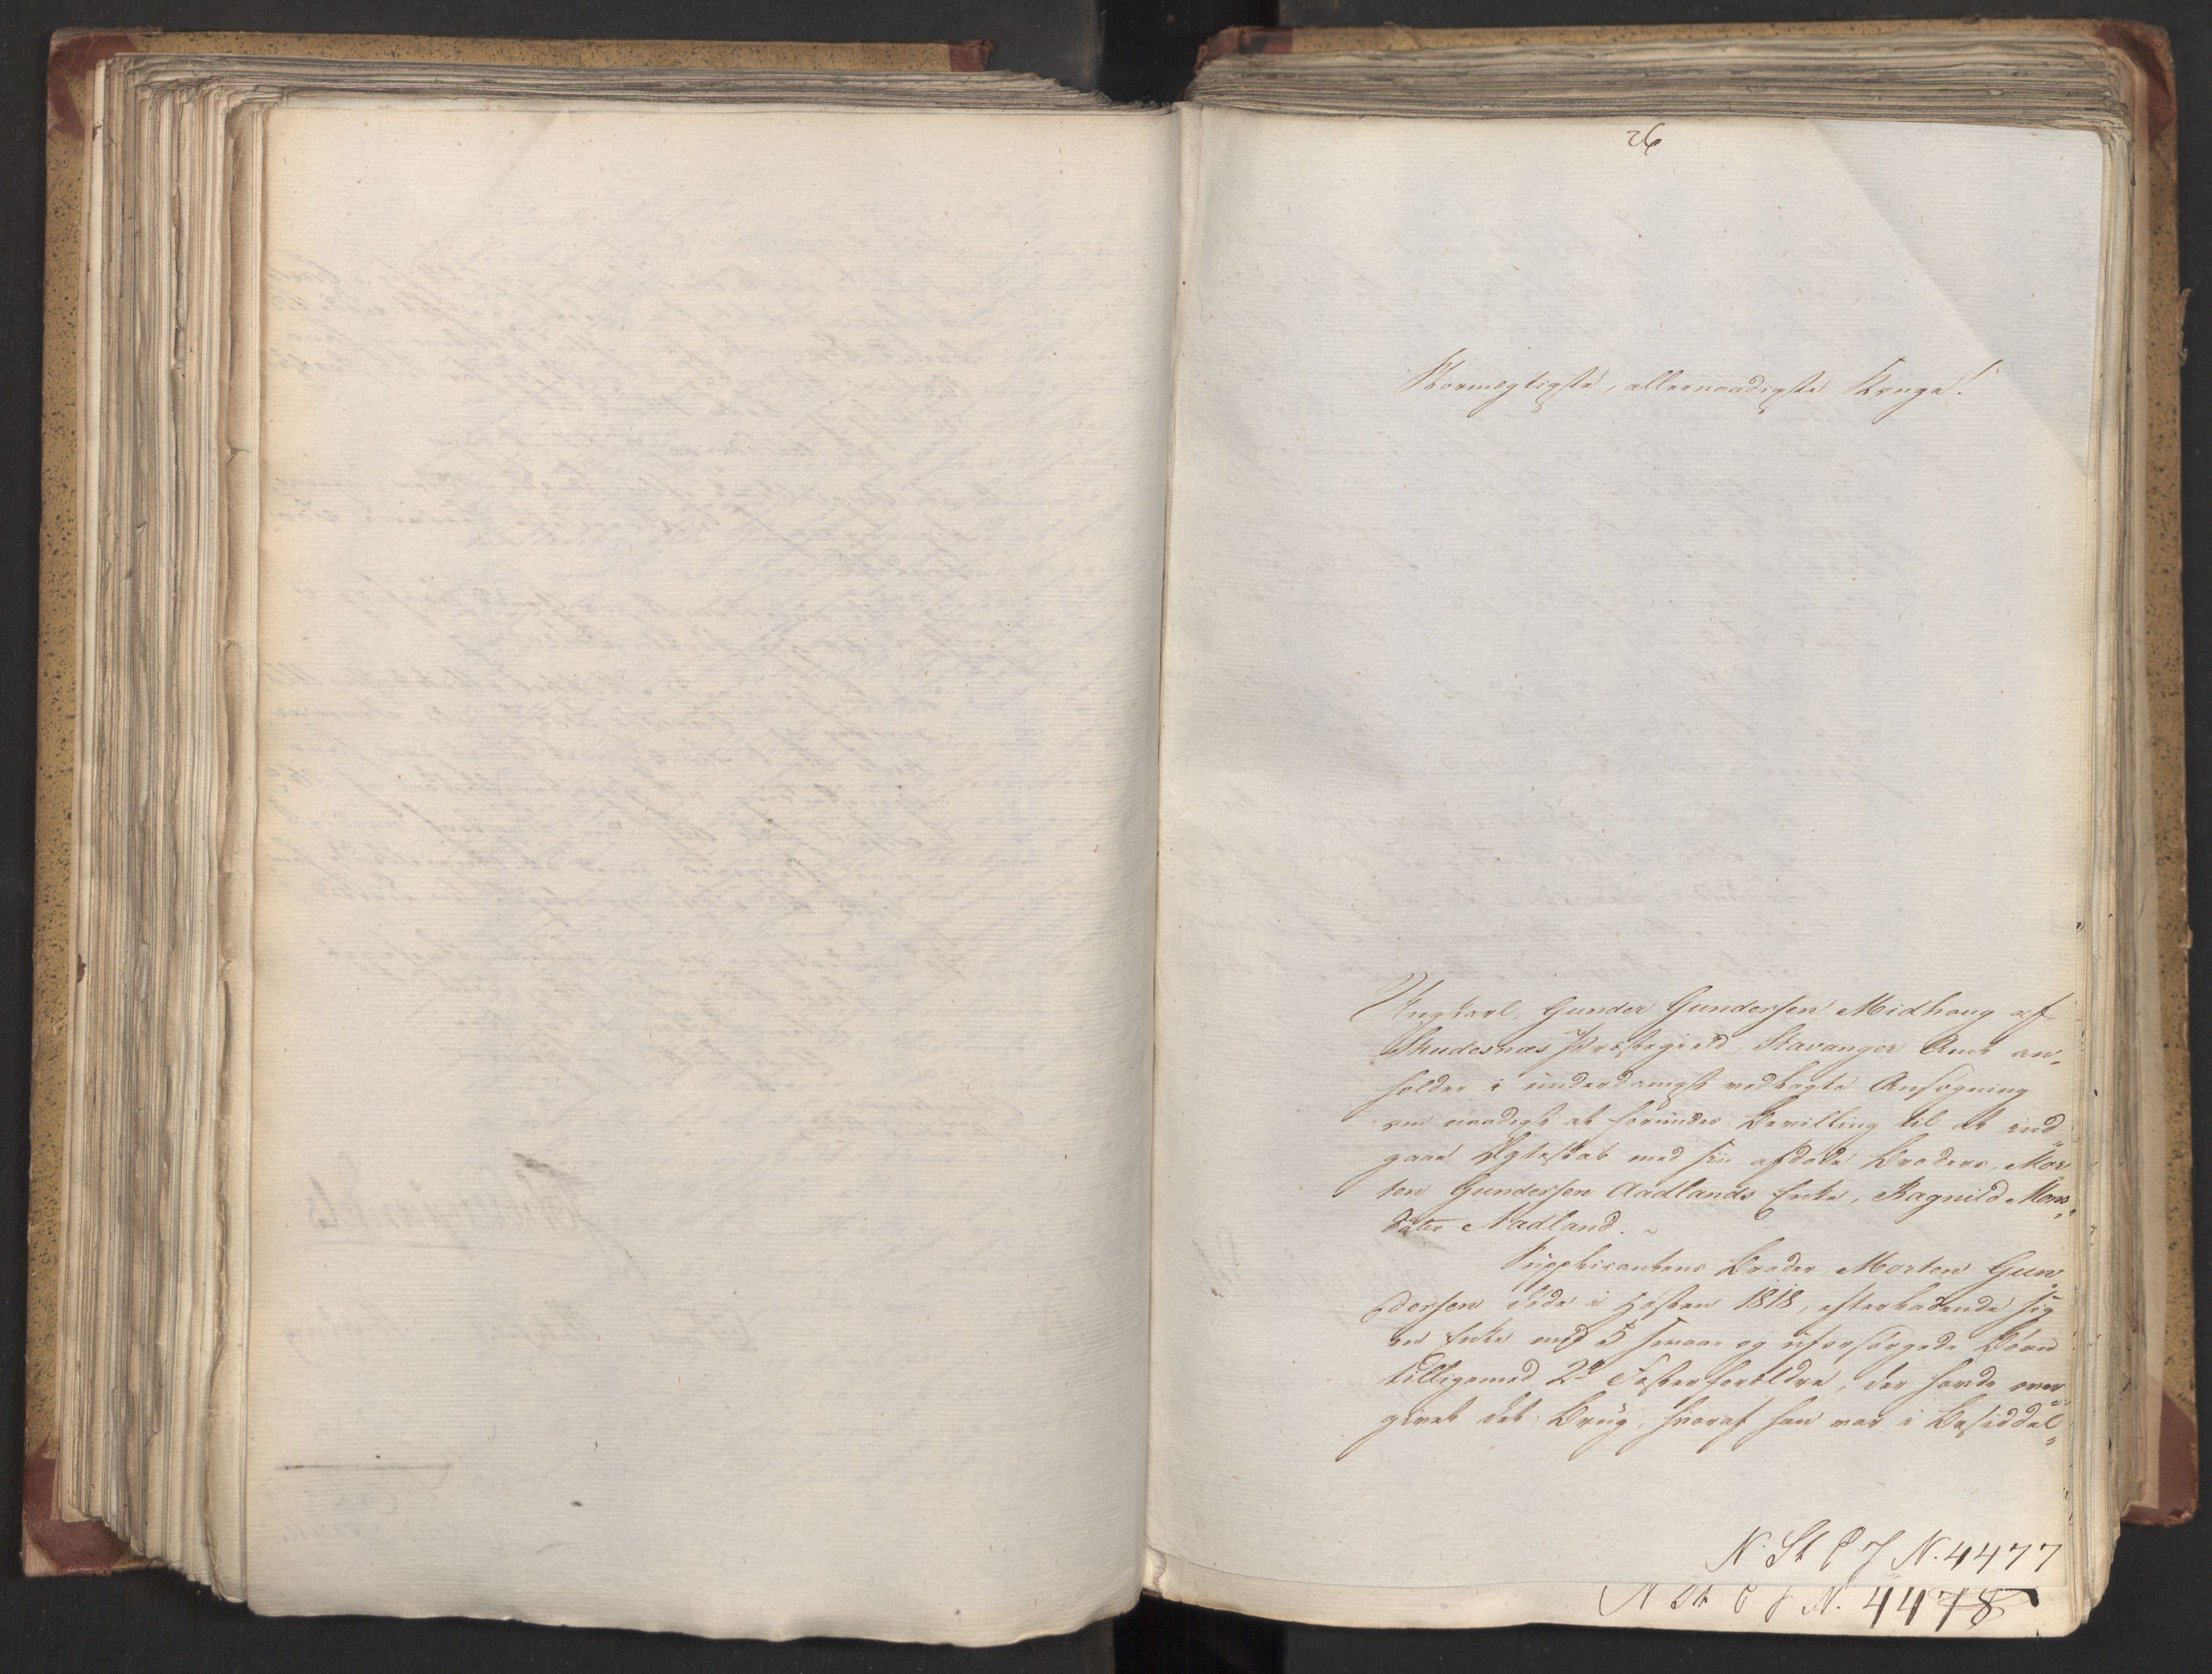 26
Stormægtigste, allernaadigste Konge!
Ungkarl, Gunder Gundersen Midhaug af
Skudesnæs Præstegield, Stavanger Amt an„
holder i underdanigst vedlagte Ansøgning
om naadigst at forundes Bevilling til at ind„
gaae Ægteskab med sin afdøde Broders, Mor„
ten Gundersen Aadlands Enke, Ragnild Mons„
datter Aadland. ~
Supplicantens Broder, Morten Gun„
dersen døde i Høsten 1818, efterladende sig
en Enke med 5 smaae og uforsørgede Børn
tilligemed 2de Fosterforældre, der havde over„
givet det Brug, hvoraf han var i Besiddel„
N. St C J N. 4477
N St C J N. 4478